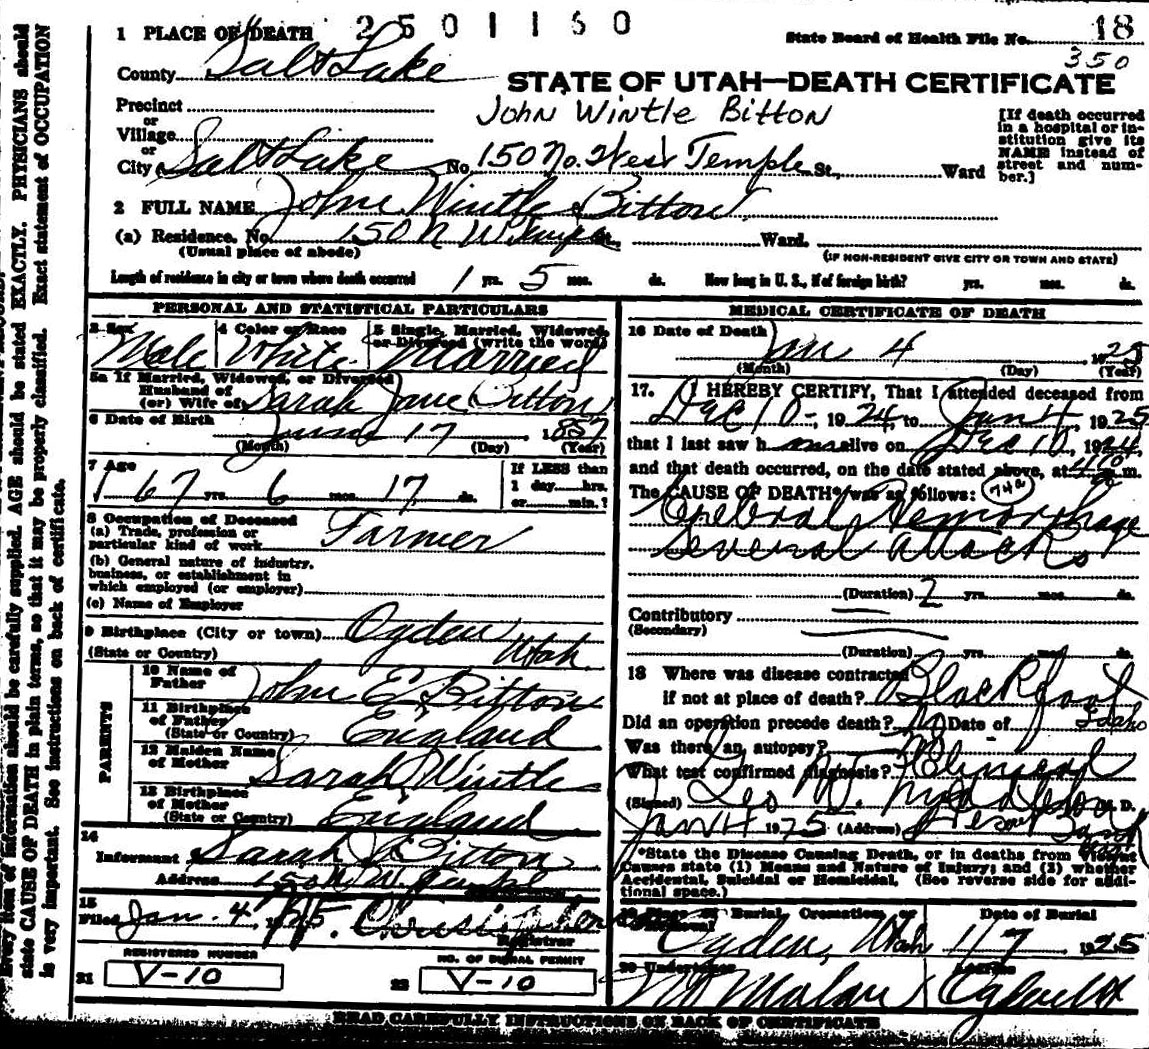 2501160
1 PLACE OF DEATH
State Board of Health File No. 18
350
County Salt Lake
STATE OF UTAH—DEATH CERTIFICATE
Precinct
or
Village
or
City Salt Lake No. 150 No. West Temple St., Ward
John Wintle Bitton
[If death occurred in a hospital or institution give its NAME instead of street and number.]
2 FULL NAME John Wintle Bitton
(a) Residence. No. 150 N W Temple St., Ward.
(Usual place of abode)
(IF NON-RESIDENT GIVE CITY OR TOWN AND STATE)
Length of residence in city or town where death occurred 1 yrs. 5 mos. ds. How long in U. S., if of foreign birth? yrs. mos. ds.
PERSONAL AND STATISTICAL PARTICULARS
3 Sex Male
4 Color or Race White
5 Single, Married, Widowed, or Divorced (write the word) Married
5a If Married, Widowed, or Divorced
Husband of
(or) Wife of Sarah Jane Bitton
6 Date of Birth June 17, 1857
(Month) (Day) (Year)
7 Age
67 yrs. 6 mos. 17 ds.
If LESS than
1 day....hrs.
or....min.?
8 Occupation of Deceased
(a) Trade, profession or
particular kind of work Farmer
(b) General nature of industry,
business, or establishment in
which employed (or employer)
(c) Name of Employer
9 Birthplace (City or town) Ogden
(State or Country) Utah
PARENTS
10 Name of
Father John E Bitton
11 Birthplace
of Father
(State or Country) England
12 Maiden Name
of Mother Sarah Wintle
13 Birthplace
of Mother
(State or Country) England
14
Informant Sarah J Bitton
Address 150 N. W. Temple
15
Filed Jan. 4, 1925.
Registrar
REGISTERED NUMBER
21 V-10
NO. OF BURIAL PERMIT
22 V-10
MEDICAL CERTIFICATE OF DEATH
16 Date of Death Jan 4, 1925
(Month) (Day) (Year)
17. I HEREBY CERTIFY, That I attended deceased from
Dec 10, 1924, to Jan 4, 1925
that I last saw him alive on Dec 10, 1924,
and that death occurred, on the date stated above, at m.
The CAUSE OF DEATH* was as follows: 74a
Cerebral Hemorrhage
Several attacks
(Duration) 2 yrs. mos. ds.
Contributory
(Secondary)
(Duration) yrs. mos. ds.
18 Where was disease contracted
if not at place of death? Blackfoot Idaho
Did an operation precede death? No Date of
Was there an autopsy? No
What test confirmed diagnosis? Clinical
(Signed) Geo W. M. D.
Jan 4 1925 (Address)
*State the Disease Causing Death, or in deaths from Violent
Causes state (1) Means and Nature of Injury; and (2) whether
Accidental, Suicidal or Homicidal. (See reverse side for additional space.)
19 Place of Burial, Cremation, or Removal Date of Burial
Ogden, Utah 1/7 1925
20 Undertaker Address
Malan Ogden Ut
READ CAREFULLY INSTRUCTIONS ON BACK OF CERTIFICATE
Every item of information should be carefully supplied. AGE should be stated EXACTLY. PHYSICIANS should
state CAUSE OF DEATH in plain terms, so that it may be properly classified. Exact statement of OCCUPATION
is very important. See instructions on back of certificate.